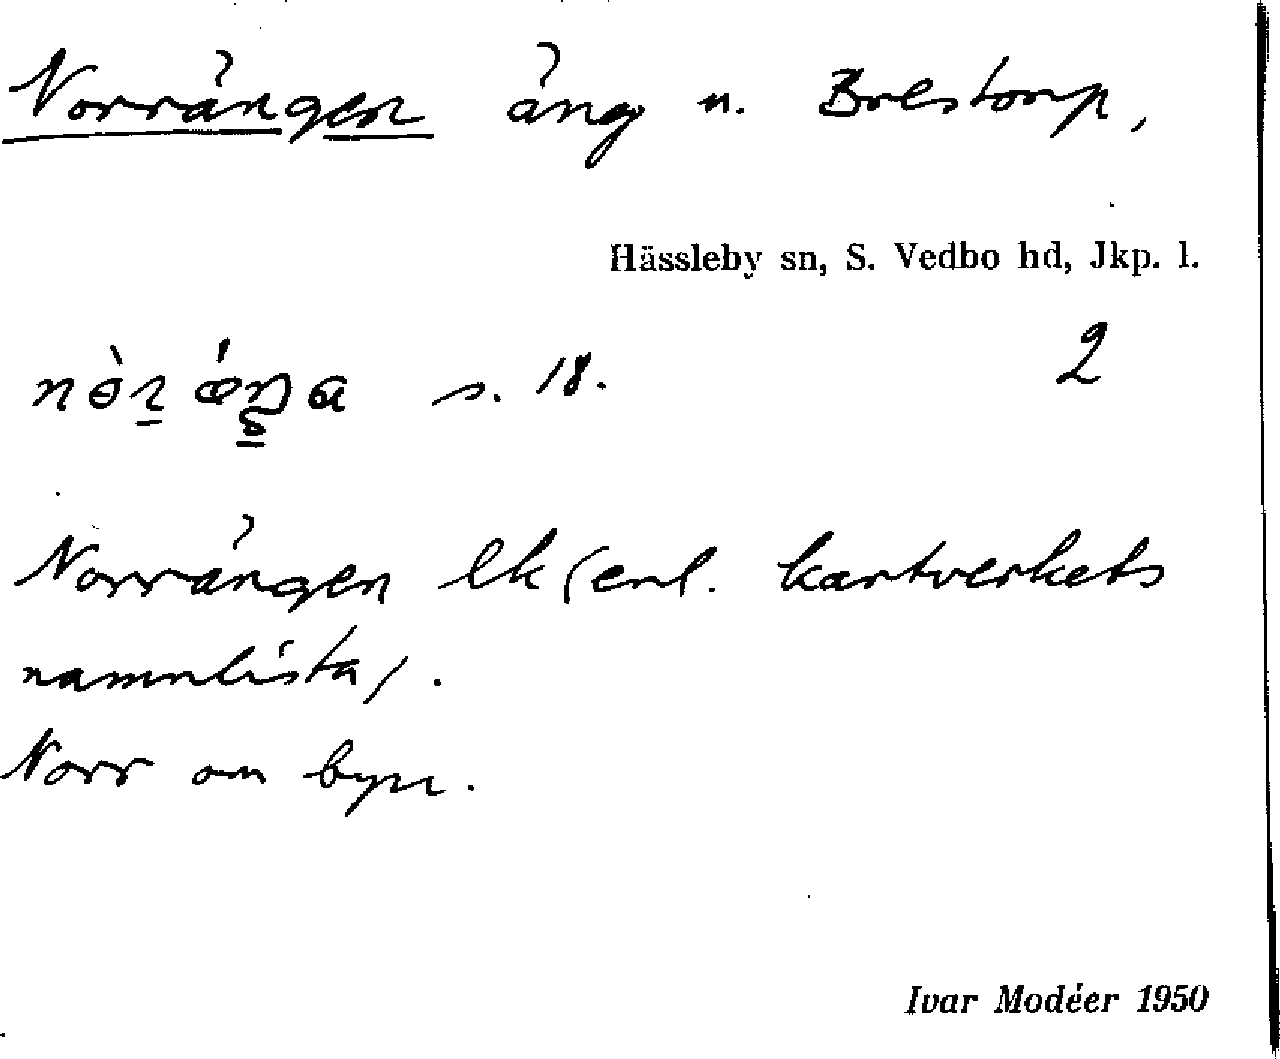 Norrängen äng n. Brestorp,
Hässleby sn, S. Vedbo hd, Jkp. l.
s. 18. 2
Norrängen ek (enl. kartverkets
namnlista).
Norr om byn.
Ivar Modéer 1950